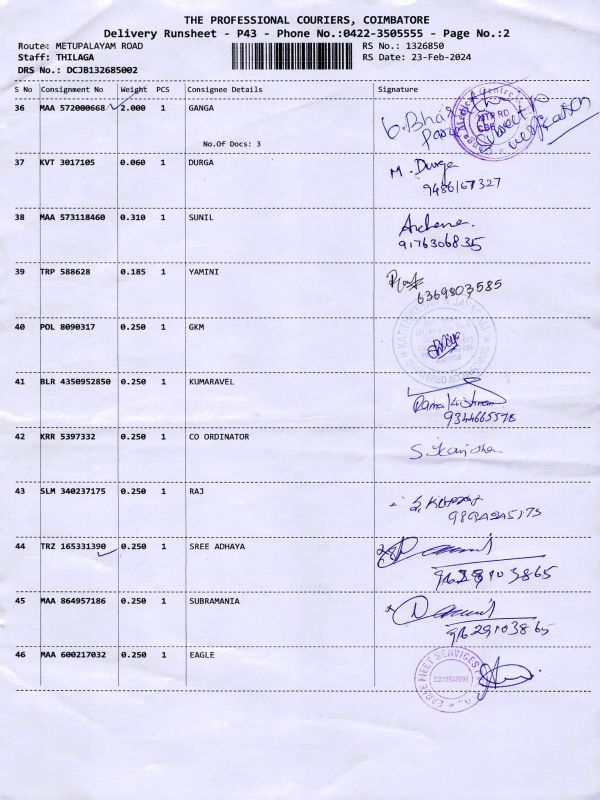 THE PROFESSIONAL COURIERS, COIMBATORE
Delivery Runsheet - P43 - Phone No.:0422-3505555 - Page No.:2
Route: METUPALAYAM ROAD
RS No.: 1326850
Staff: THILAGA
RS Date: 23-Feb-2024
DRS No.: DCJB132685002
S No Consignment No Weight PCS Consignee Details Signature
36 MAA 572000668 2.000 1 GANGA
No.Of Docs: 3
37 KVT 3017105 0.060 1 DURGA M. Durga
9486167327
38 MAA 573118460 0.310 1 SUNIL Archana
9176306835
39 TRP 588628 0.185 1 YAMINI
6369803585
40 POL 8090317 0.250 1 GKM
41 BLR 4350952850 0.250 1 KUMARAVEL Rama Krishnan
9344665578
42 KRR 5397332 0.250 1 CO ORDINATOR
43 SLM 340237175 0.250 1 RAJ
9894245173
44 TRZ 165331390 0.250 1 SREE ADHAYA
9629103865
45 MAA 864957186 0.250 1 SUBRAMANIA
9629103865
46 MAA 600217032 0.250 1 EAGLE
EAGLE FLEET SERVICES
COIMBATORE